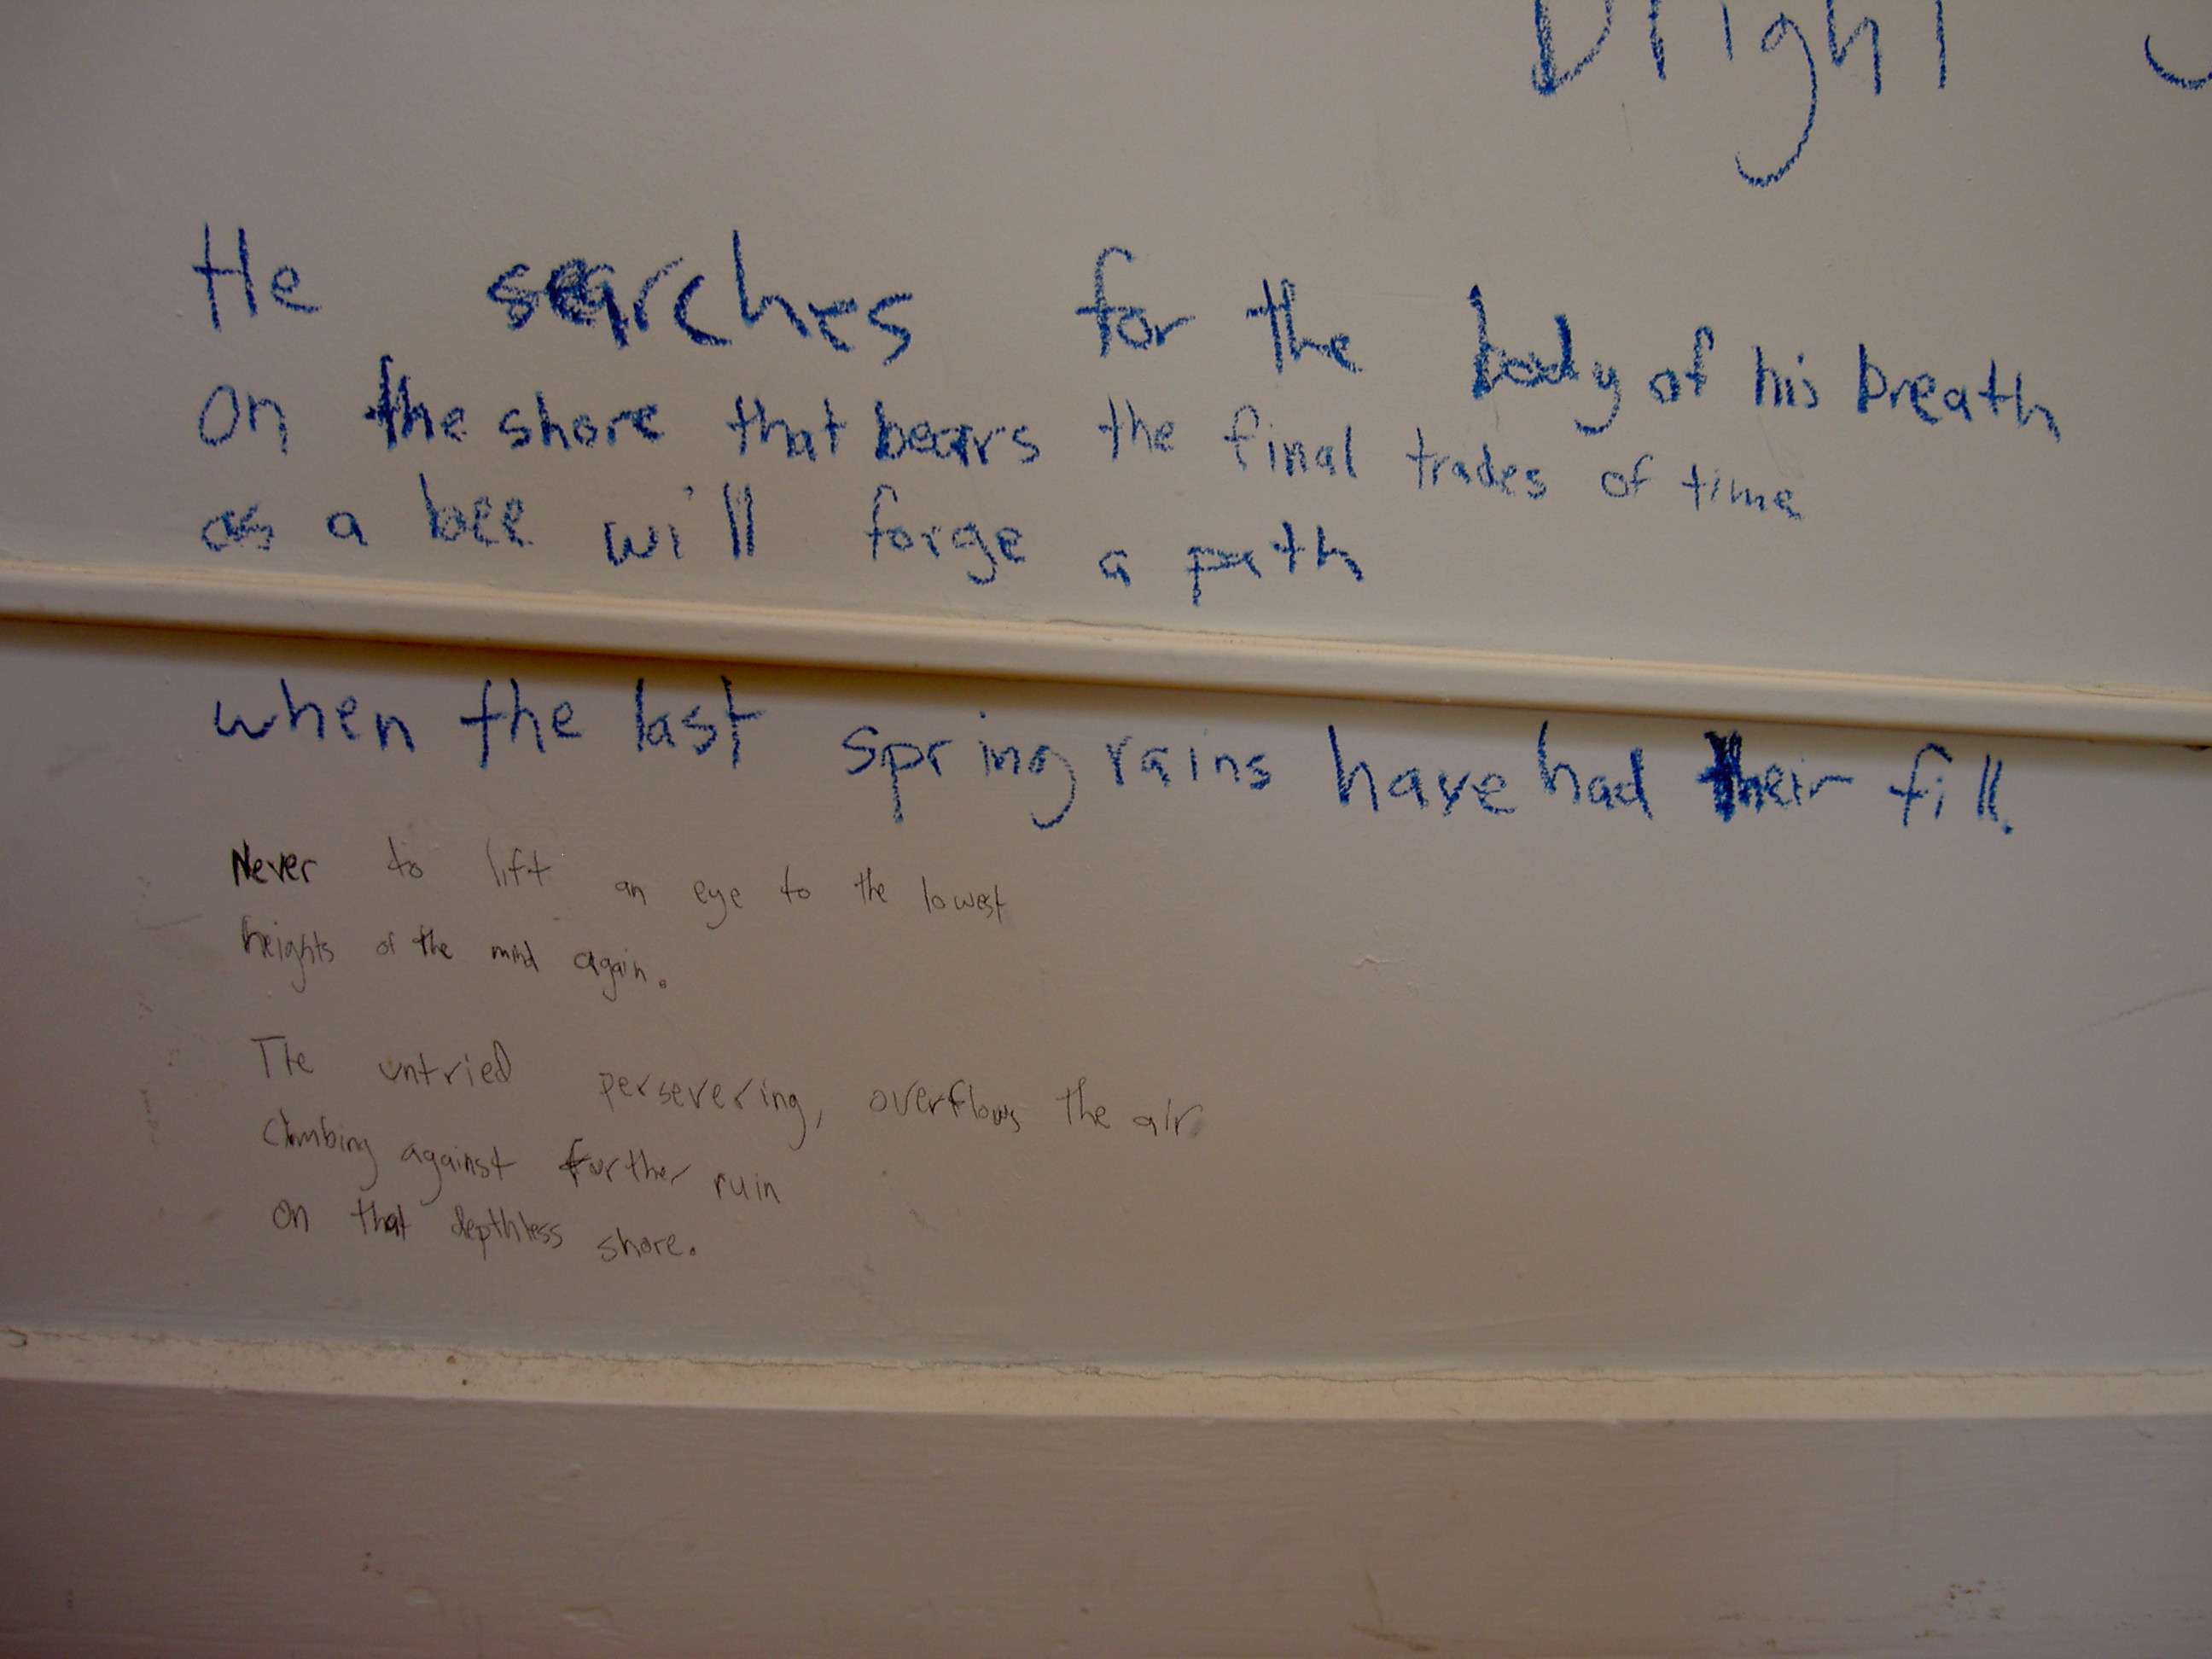 Bright
He searches for the body of his breath
On the shore that bears the final trades of time
as a bee will forge a path
when the last spring rains have had their fill.
Never to lift an eye to the lowest
heights of the mind again.
The untried persevering, overflows the air
Climbing against further ruin
On that depthless shore.